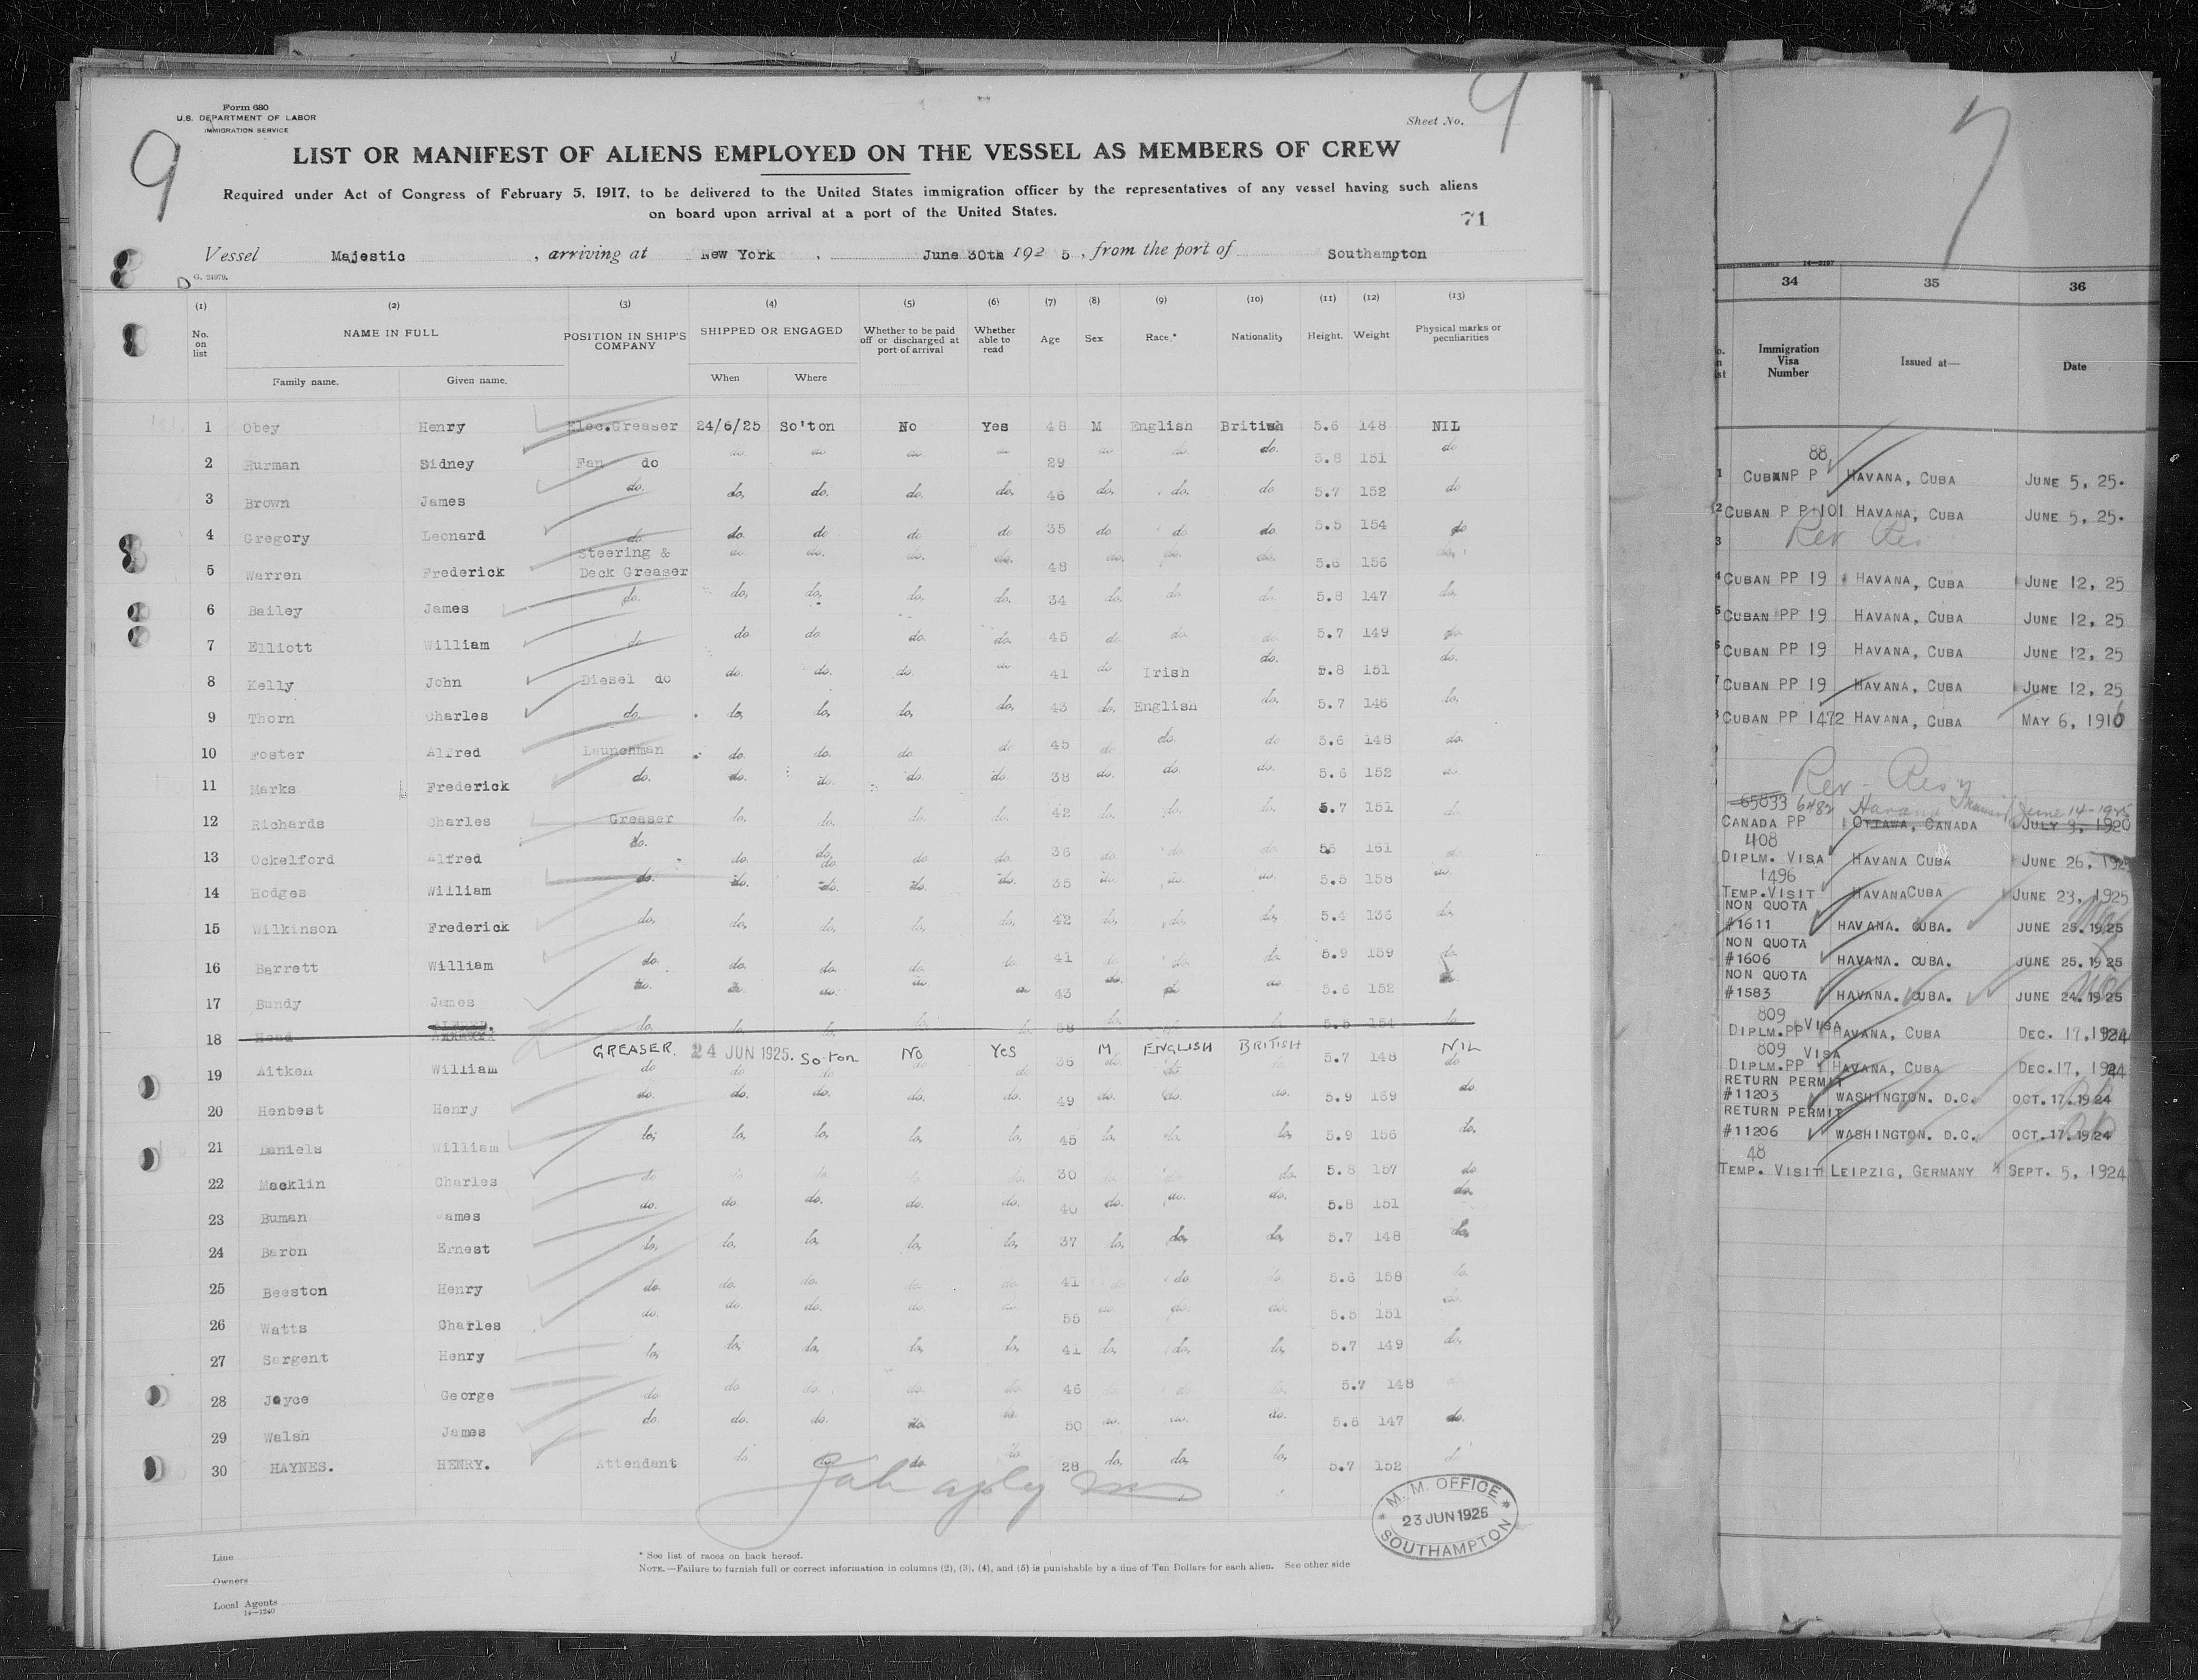 9
Form 680
U.S. DEPARTMENT OF LABOR
IMMIGRATION SERVICE
Sheet No. 9
LIST OR MANIFEST OF ALIENS EMPLOYED ON THE VESSEL AS MEMBERS OF CREW
Required under Act of Congress of February 5, 1917, to be delivered to the United States immigration officer by the representatives of any vessel having such aliens
on board upon arrival at a port of the United States.
71
Vessel Majestic, arriving at New York, June 30th 1925, from the port of Southampton
G. 24979.
(1) (2) (3) (4) (5) (6) (7) (8) (9) (10) (11) (12) (13)
No. on list NAME IN FULL POSITION IN SHIP'S COMPANY SHIPPED OR ENGAGED Whether to be paid off or discharged at port of arrival Whether able to read Age Sex Race.* Nationality Height. Weight Physical marks or peculiarities
Family name. Given name. When Where
1 Obey Henry Elec.Greaser 24/6/25 So'ton No Yes 48 M English British 5.6 148 NIL
2 Hurman Sidney Fan do do do do. do 29 do do. do. 5.8 151 do
3 Brown James do. do, do. do. do, 46 do, do, do 5.7 152 do
4 Gregory Leonard do do. do do do 35 do do do. 5.5 154 do
5 Warren Frederick Steering & Deck Greaser do do. do. do. 48 do. do. do. 5.6 156 do.
6 Bailey James do. do, do, do, do, 34 do, do do. 5.8 147 do,
7 Elliott William do do. do do. do. 45 do do. do 5.7 149 do.
8 Kelly John Diesel do do. do. do. do 41 do Irish do. 5.8 151 do.
9 Thorn Charles do. do, do, do, do, 43 do, English do, 5.7 146 do,
10 Foster Alfred Launchman do. do. do. do 45 do do. do 5.6 148 do.
11 Marks Frederick do. do. do. do. do. 38 do. do. do. 5.6 152 do.
12 Richards Charles Greaser do, do, do, do, 42 do, do, do, 5.7 151 do,
13 Ockelford Alfred do. do. do. do do. 36 do. do. do. 55 161 do
14 Hodges William do. do. do. do. do. 35 do do. do. 5.5 158 do.
15 Wilkinson Frederick do, do, do, do, do, 42 do, do, do, 5.4 136 do,
16 Barrett William do. do. do. do. do. 41 do do. do. 5.9 159 do.
17 Bundy James do. do. do. do do 43 do. do do 5.6 152 do.
18 Head ALFRED. do, do, do, do, do, 58 do, do, 5.5 154 do
GREASER. 24 JUN 1925. So.ton No Yes M ENGLISH BRITISH NIL
19 Aitken William do do do do do 36 do. do. do. 5.7 148 do
20 Henbest Henry do. do. do. do. do. 49 do. do. do. 5.9 169 do.
21 Daniels William do, do, do, do, do, 45 do, do, do, 5.9 156 do,
22 Macklin Charles do do do do do. 30 do do do. 5.8 157 do.
23 Buman James do. do. do. do. do. 40 do. do. do. 5.8 151 do.
24 Baron Ernest do, do, do, do, do, 37 do, do, do, 5.7 148 do,
25 Beeston Henry do. do. do. do. do. 41 do do do. 5.6 158 do.
26 Watts Charles do. do. do. do. do. 55 do. do. do. 5.5 151 do.
27 Sargent Henry do, do, do, do, do, 41 do, do, do, 5.7 149 do,
28 Joyce George do. do do. do. do. 46 do do do 5.7 148 do
29 Walsh James do. do. do. do. do. 50 do. do. do. 5.6 147 do.
30 HAYNES. HENRY. Attendant do do do. do 28 do, do, do, 5.7 152 do
M. M. OFFICE
23 JUN 1925
SOUTHAMPTON
Line
Owners
Local Agents
14—1240
* See list of races on back hereof.
NOTE.—Failure to furnish full or correct information in columns (2), (3), (4), and (5) is punishable by a fine of Ten Dollars for each alien. See other side
7
14-2197
34 35 36
Immigration Visa Number Issued at— Date
88
1 CUBAN P P HAVANA, CUBA JUNE 5, 25.
2 CUBAN P P 101 HAVANA, CUBA JUNE 5, 25.
3 Rev Res
4 CUBAN PP 19 HAVANA, CUBA JUNE 12, 25
5 CUBAN PP 19 HAVANA, CUBA JUNE 12, 25
6 CUBAN PP 19 HAVANA, CUBA JUNE 12, 25
7 CUBAN PP 19 HAVANA, CUBA JUNE 12, 25
8 CUBAN PP 1472 HAVANA, CUBA MAY 6, 1916
Rev - Res
65833 6482 Havana June 14-1925
CANADA PP OTTAWA, CANADA JULY 3, 1920
408
DIPLM. VISA HAVANA CUBA JUNE 26, 1925
1496
TEMP. VISIT HAVANA CUBA JUNE 23, 1925
NON QUOTA
#1611 HAVANA. CUBA. JUNE 25. 1925
NON QUOTA
#1606 HAVANA. CUBA. JUNE 25. 1925
NON QUOTA
#1583 HAVANA. CUBA. JUNE 24. 1925
809
DIPLM.PP VISA HAVANA, CUBA DEC. 17, 1924
809
DIPLM.PP VISA HAVANA, CUBA DEC. 17, 1924
RETURN PERMIT
#11203 WASHINGTON. D.C. OCT. 17. 1924
RETURN PERMIT
#11206 WASHINGTON. D.C. OCT. 17. 1924
48
TEMP. VISIT LEIPZIG, GERMANY SEPT. 5, 1924